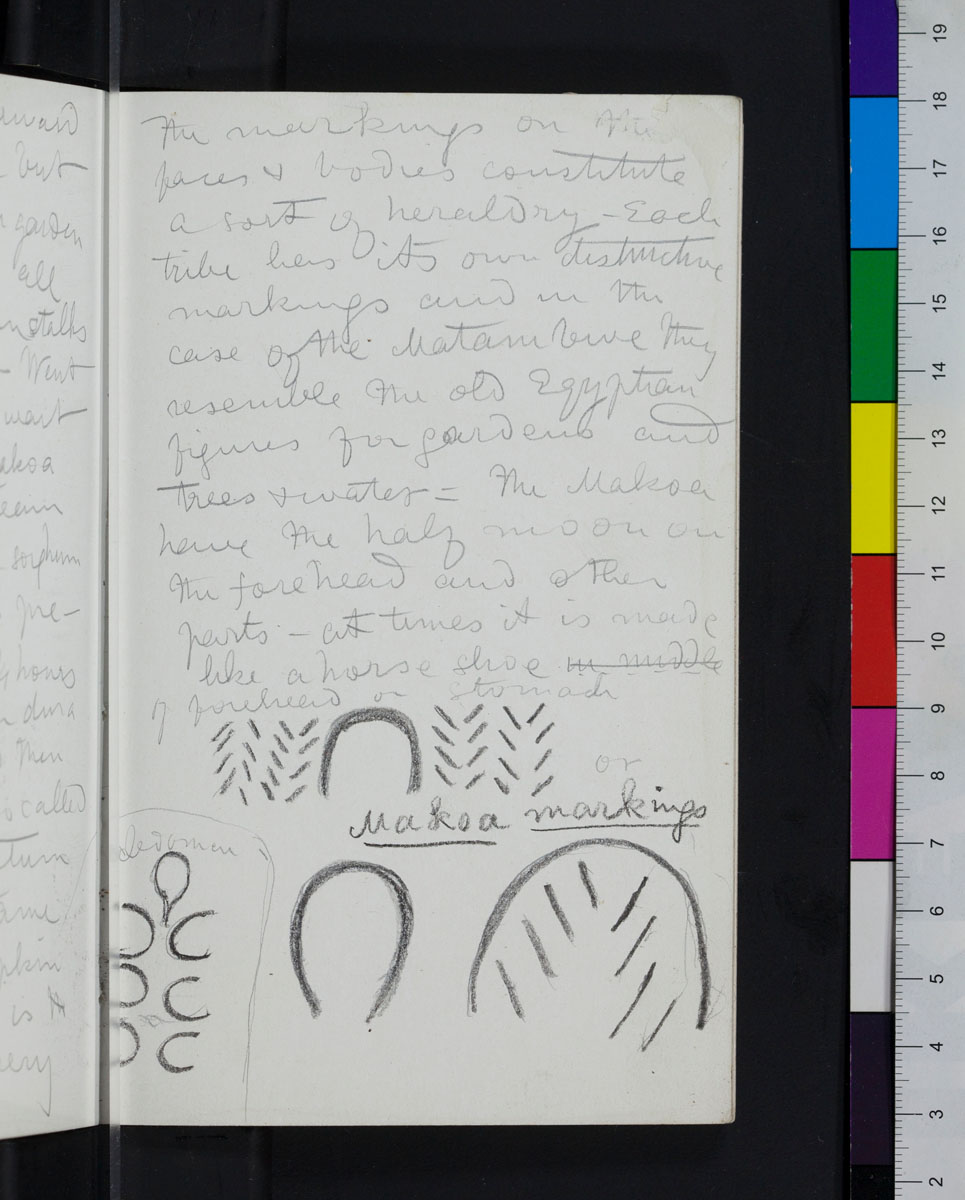 award
but
garden
all
stalks
- Went
wait
akoa
sorghum
pre-
hours
dura
then
is called
ame
pkin
is it
ery
The markings on the
faces & bodies constitute
a sort of heraldry - Each
tribe has its own distinctive
markings and in the
case of the Matambwe they
resemble the old Egyptian
figures for gardens and
trees & water = The Makoa
have the half moon on
the forehead and other
parts - at times it is made
like a horse shoe in middle
of forehead or stomach
or
Makoa markings
19
18
17
16
15
14
13
12
11
10
9
8
7
6
5
4
3
2